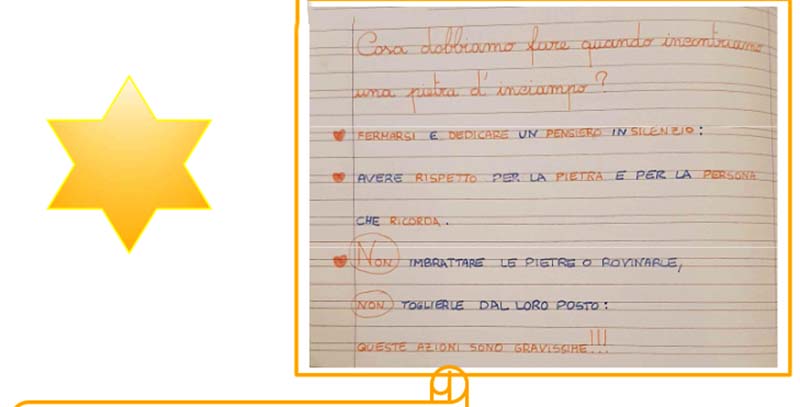 Cosa dobbiamo fare quando incontriamo
una pietra d'inciampo?
FERMARSI E DEDICARE UN PENSIERO IN SILENZIO:
AVERE RISPETTO PER LA PIETRA E PER LA PERSONA
CHE RICORDA.
NON IMBRATTARE LE PIETRE O ROVINARLE,
NON TOGLIERLE DAL LORO POSTO:
QUESTE AZIONI SONO GRAVISSIME!!!